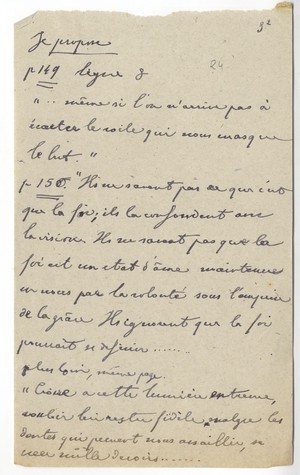 3º
Je propose
p 149 ligne 8
24
"... même si l'on n'arrive pas à
écarter le voile qui nous masque
le but."
p 150. "Ils ne savent pas ce que c'est
que la foi, ils la confondent avec
la vision. Ils ne savent pas que la
foi est un état d'âme maintenu
en nous par la volonté sous l'empire
de la grâce. Ils ignorent que la foi
pourrait se définir ......
plus loin, même page.
"Croire a cette lumière entrevue,
vouloir lui rester fidèle malgré les
doutes qui peuvent nous assaillir, se
créer mille devoirs ......